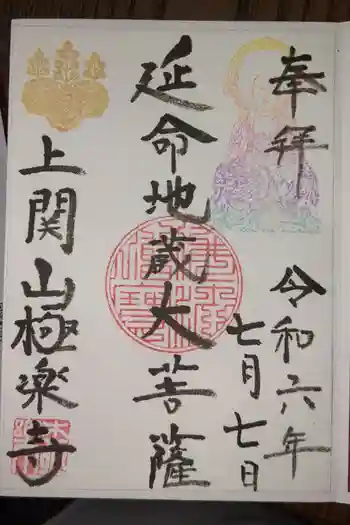 奉拝
令和六年
七月七日
延命地蔵大菩薩
上関山極楽寺